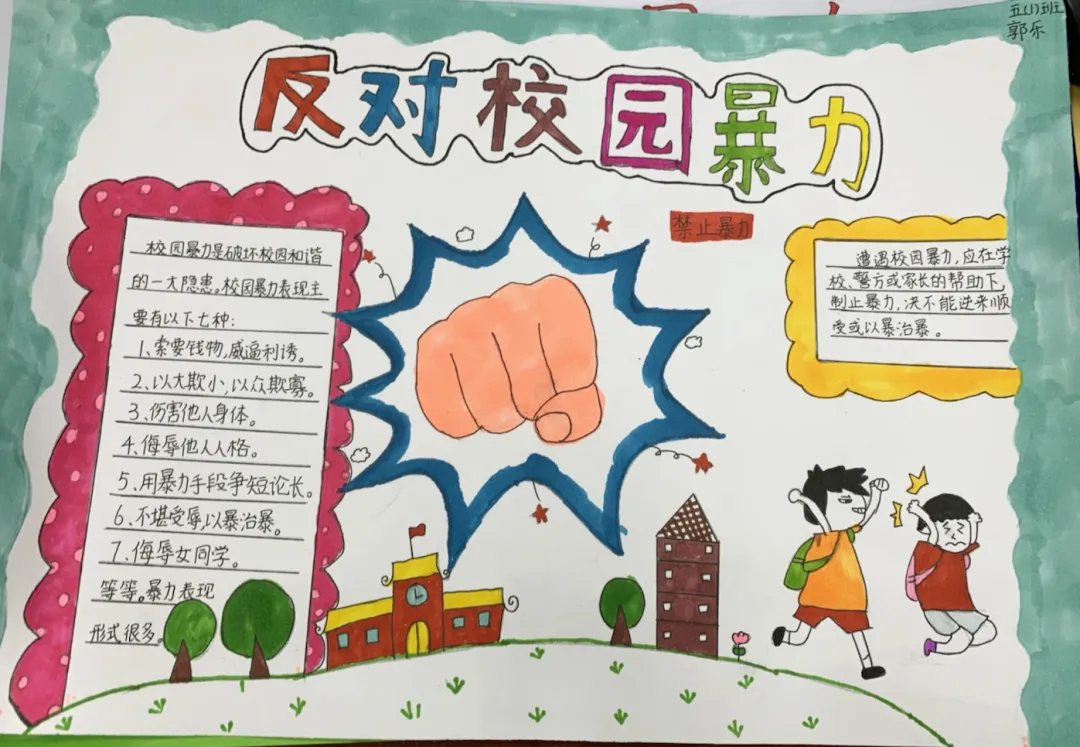 五(1)班
郭乐
反对校园暴力
禁止暴力
校园暴力是破坏校园和谐
的一大隐患。校园暴力表现主
要有以下七种:
1、索要钱物,威逼利诱。
2、以大欺小,以众欺寡。
3、伤害他人身体。
4、侮辱他人人格。
5、用暴力手段争短论长。
6、不堪受辱,以暴治暴。
7、侮辱女同学。
等等。暴力表现
形式很多。
遭遇校园暴力,应在学
校、警方或家长的帮助下,
制止暴力,决不能逆来顺
受或以暴治暴。